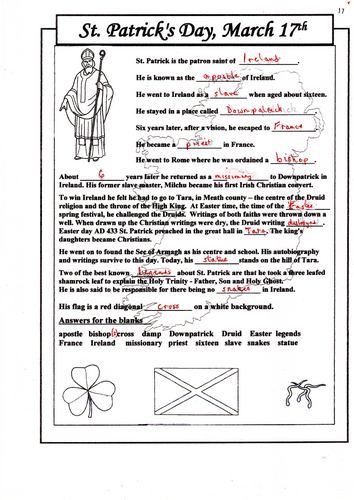 17
St. Patrick's Day, March 17th
St. Patrick is the patron saint of Ireland.
He is known as the apostle of Ireland.
He went to Ireland as a slave when aged about sixteen.
He stayed in a place called Downpatrick.
Six years later, after a vision, he escaped to France
He became a priest in France.
He went to Rome where he was ordained a bishop.
About 6 years later he returned as a missionary to Downpatrick in
Ireland. His former slave master, Milchu became his first Irish Christian convert.
To win Ireland he felt he had to go to Tara, in Meath county – the centre of the Druid
religion and the throne of the High King. At Easter time, the time of the Easter
spring festival, he challenged the Druids. Writings of both faiths were thrown down a
well. When drawn up the Christian writings were dry, the Druid writing
Easter day AD 433 St. Patrick preached in the great hall in Tara. The king's
daughters became Christians.
He went on to found the See of Armagh as his centre and school. His autobiography
and writings survive to this day. Today, his statue stands on the hill of Tara.
Two of the best known legends about St. Patrick are that he took a three leafed
shamrock leaf to explain the Holy Trinity - Father, Son and Holy Ghost.
He is also said to be responsible for there being no snakes in Ireland.
His flag is a red diagonal cross on a white background.
Answers for the blanks
apostle bishop cross damp Downpatrick Druid Easter legends
France Ireland missionary priest sixteen slave snakes statue